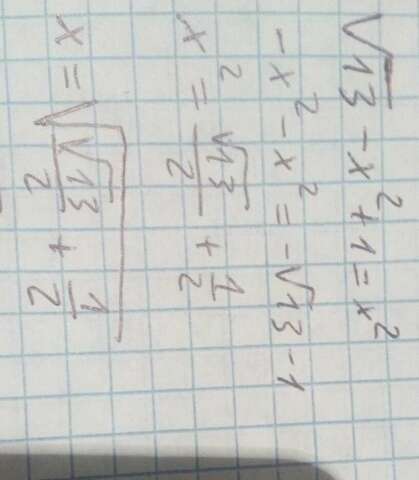 √13 - x² + 1 = x²
-x² - x² = -√13 - 1
x² = √13/2 + 1/2
x = √(√13/2 + 1/2)